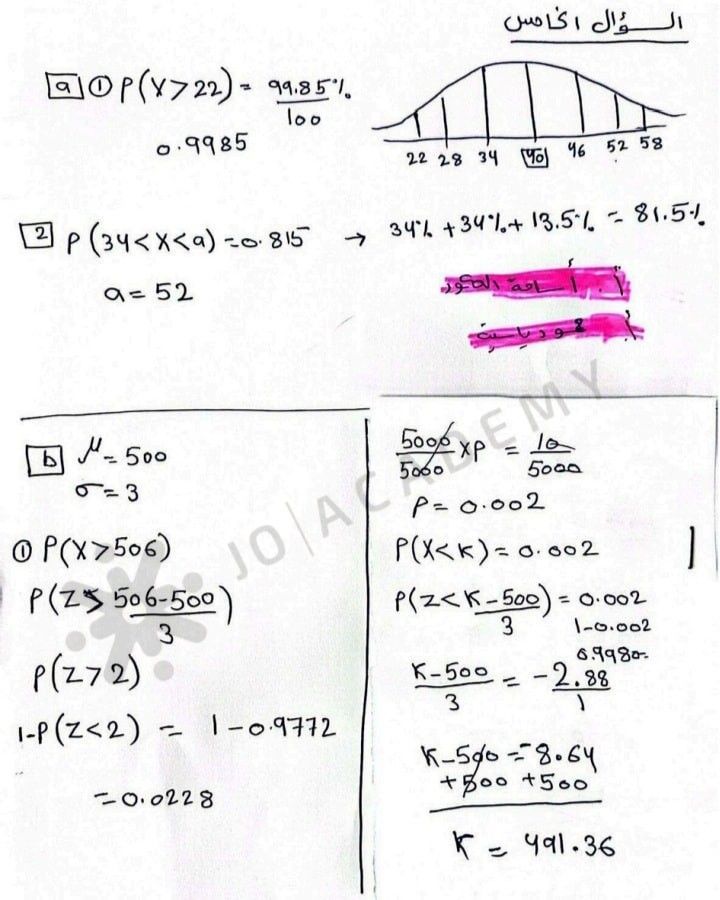 السؤال الخامس
a ① P(X>22) = 99.85% / 100
0.9985
22 28 34 40 46 52 58
2 P(34<X<a) = 0.815 → 34% + 34% + 13.5% = 81.5%
a = 52
أ. أسامة
b μ = 500
σ = 3
① P(X>506)
P(Z> 506-500 / 3)
P(Z>2)
1-P(Z<2) = 1-0.9772
=0.0228
5000/5000 xP = 10/5000
P = 0.002
P(X<K) = 0.002
P(Z< K-500 / 3) = 0.002
1-0.002
0.9980
K-500 / 3 = -2.88 / 1
K-500 = -8.64
+500 +500
K = 491.36
JO|ACADEMY